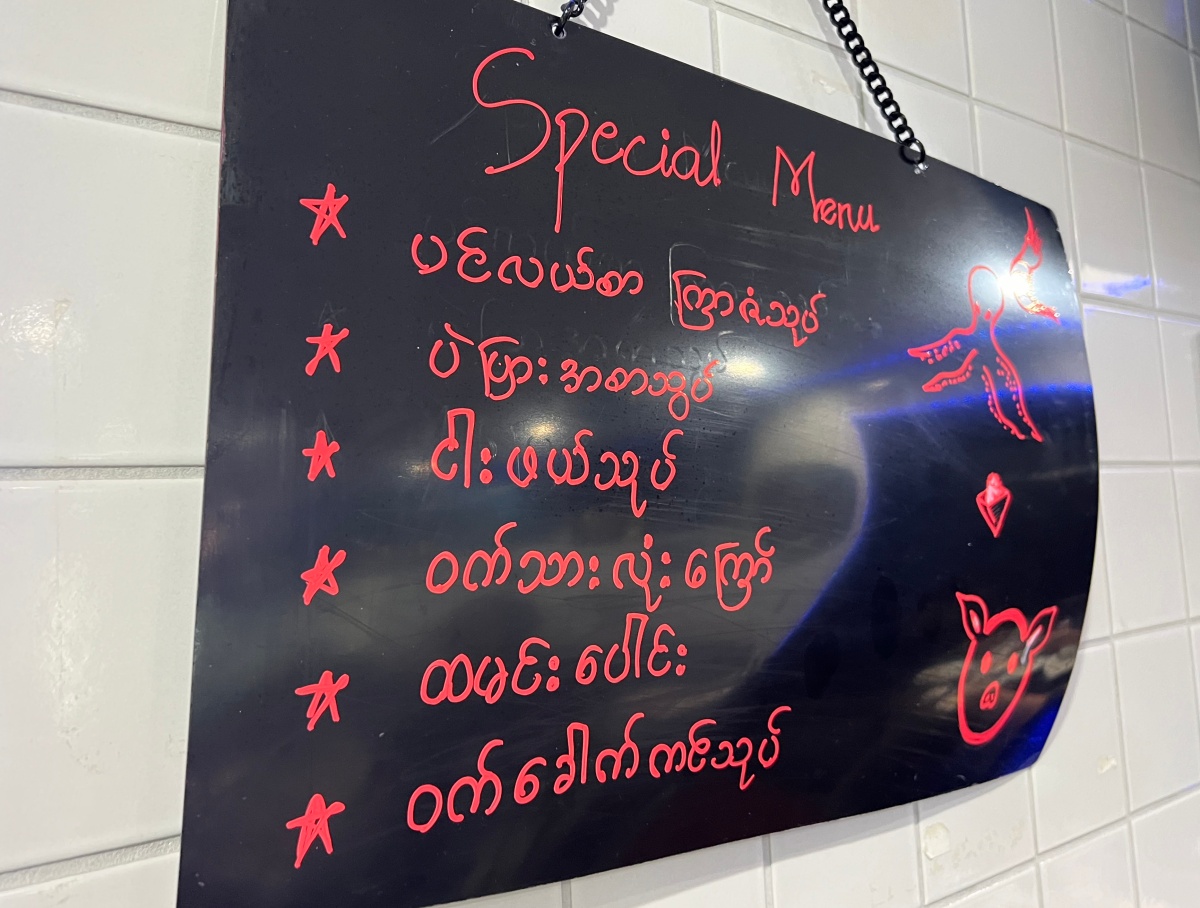 Special Menu
ပင်လယ်စာ ကြာဇံသုပ်
ပဲပြားအစာသွပ်
ငါးဖယ်သုပ်
ဝက်သားလုံးကြော်
ထမင်းပေါင်း
ဝက်ခေါက်ကင်သုပ်